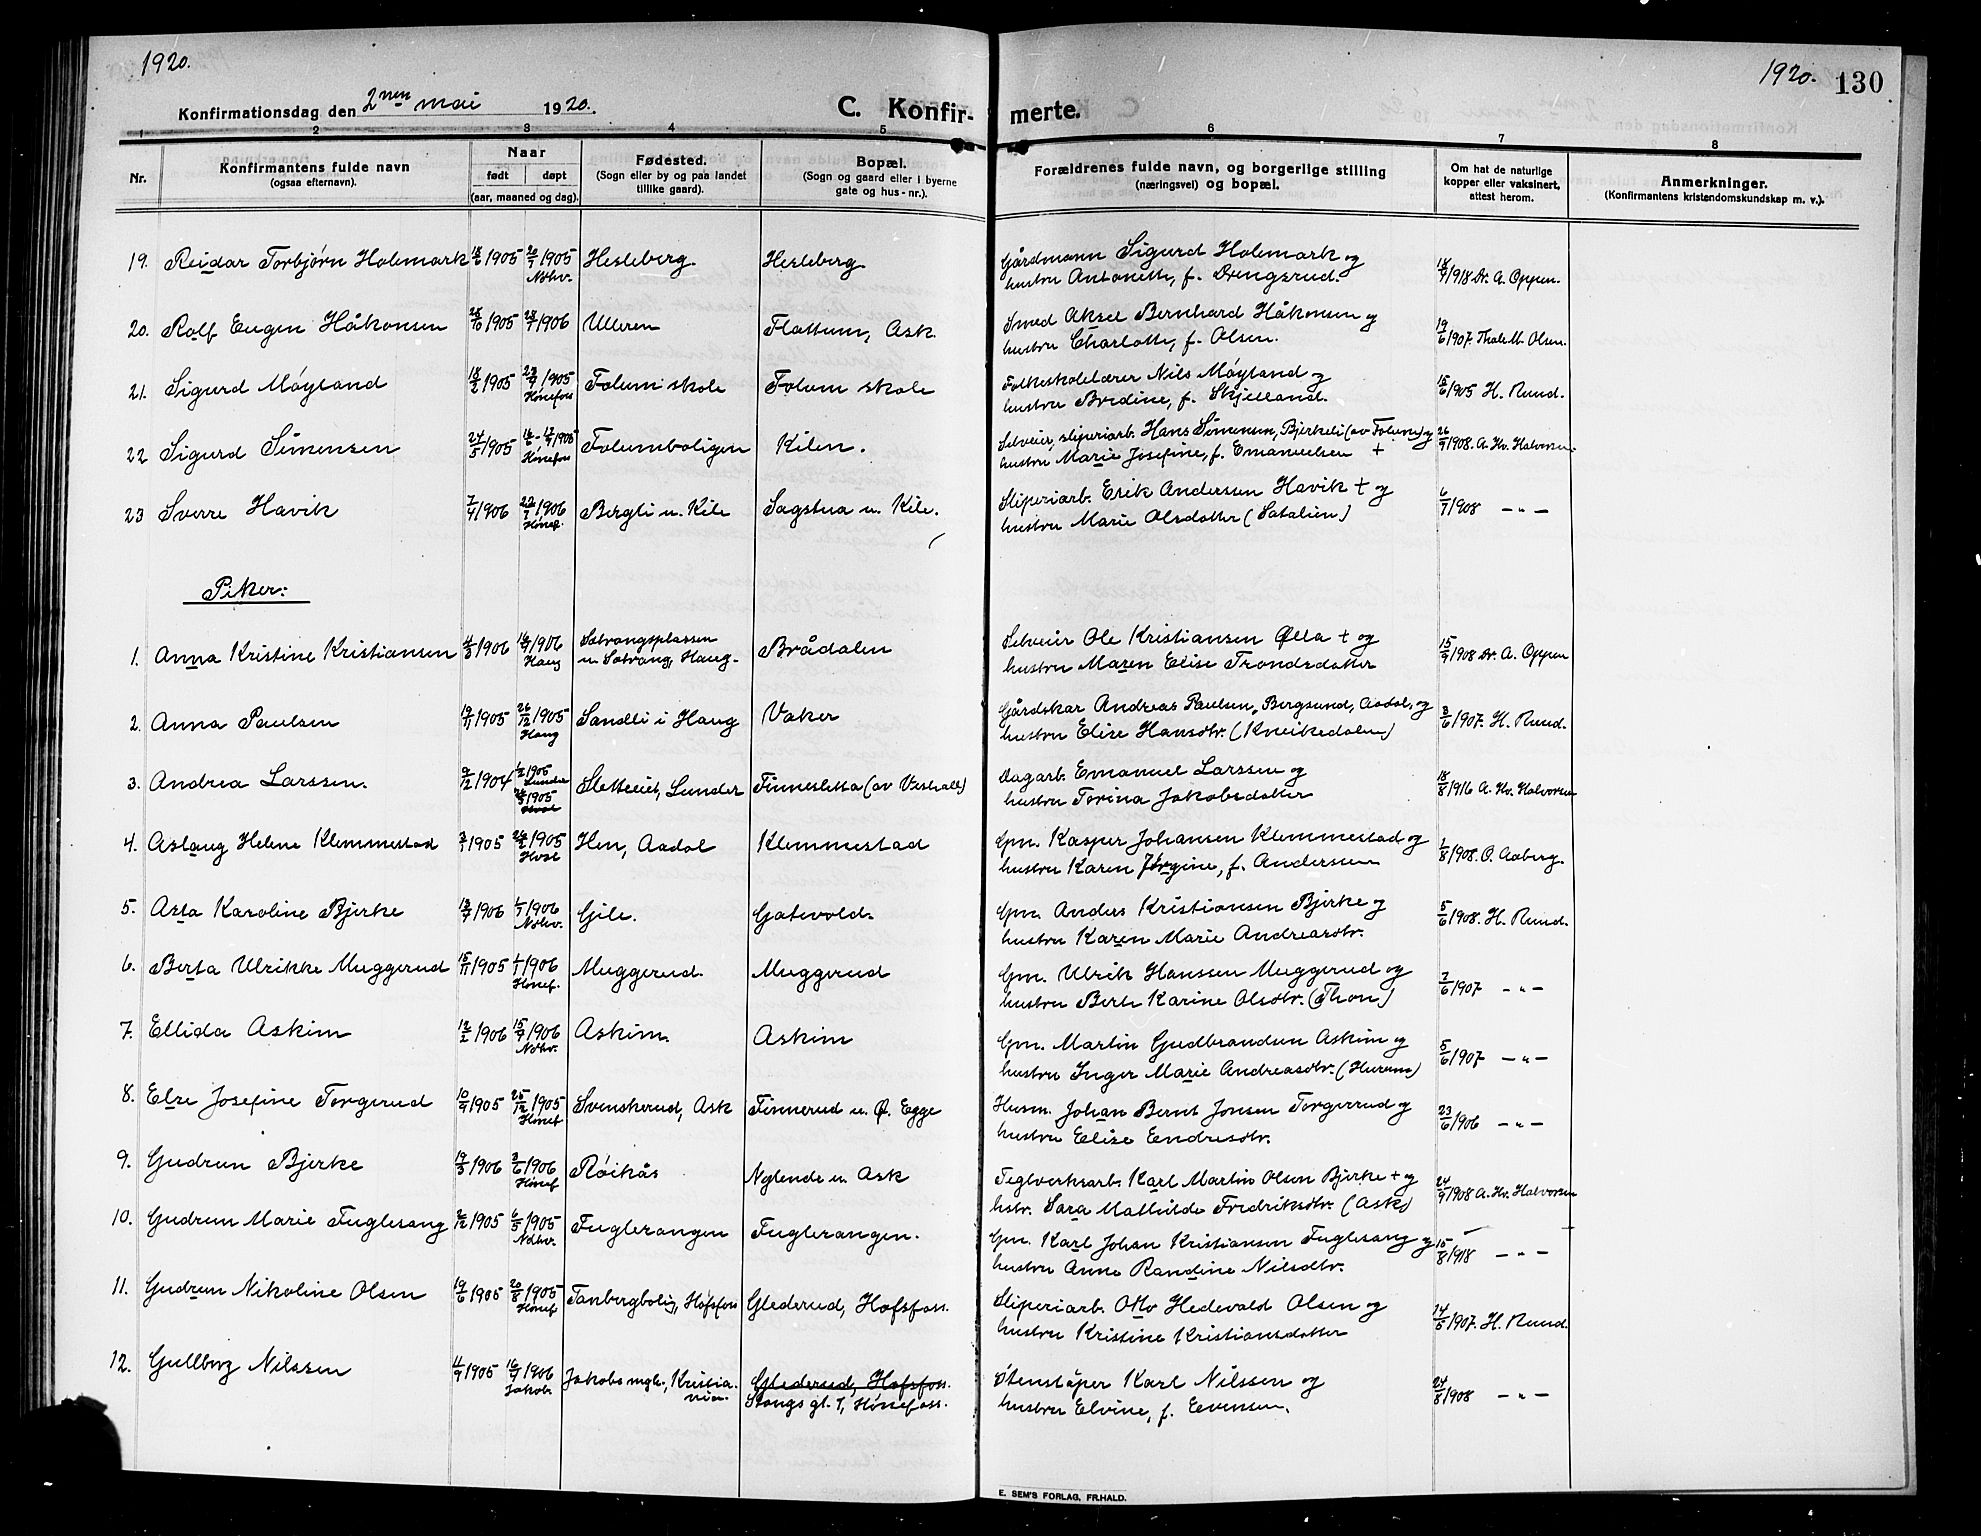 1920.
1920. 130
Konfirmationsdag den 2nen mai 1920.
C. Konfir- merte.
1 2 3 4 5 6 7 8
Nr.
Konfirmantens fulde navn
(ogsaa efternavn).
Naar
født døpt
(aar, maaned og dag).
Fødested.
(Sogn eller by og paa landet
tillike gaard).
Bopæl.
(Sogn og gaard eller i byerne
gate og hus-nr.).
Forældrenes fulde navn, og borgerlige stilling
(næringsvei) og bopæl.
Om hat de naturlige
kopper eller vaksinert,
attest herom.
Anmerkninger.
(Konfirmantens kristendomskundskap m. v.).
19. Reidar Torbjørn Holemark 18/6 1905 1905 Hesleberg. Hesleberg
Ndhv.
Gårdmann Sigurd Holemark og
hustru Antonette, f. Drengsrud.
18/9 1918 Dr. A. Oppen.
20. Rolf Eugen Håkonsen 28/10 1905 1906 Ulleren Flattum, Ask.
Smed Aksel Bernhard Håkonsen og
hustru Charlotte, f. Olsen.
19/6 1907. Thale M. Olsen.
21. Sigurd Møyland 18/2 1905 23/9 1905 Folum skole Folum skole
Hønefoss
Folkeskolelærer Nils Møyland og
hustru Bredine, f. Skjelland.
15/6 1905 H. Ruud.
22 Sigurd Simensen 24/5 1905 1905 Folumboligen Kilen.
Hønefoss
Selveier, sliperiarb. Hans Simensen, Bjerkeli (av Folum) og
hustru Marie Josefine, f. Emanuelsen +
26/9 1908. A. Hv. Halvorsen.
23 Sverre Havik 7/4 1906 22/7 1906 Bergli u. Kile Sagstua u. Kile.
Hønef.
Sliperiarb. Erik Andersen Havik + og
hustru Marie Olsdatter (Satalien)
6/7 1908 — " —
Piker:
1. Anna Kristine Kristiansen 4/8 1906 16/9 1906 Sætrangsplassen Brådalen
Haug u. Sætrang, Haug.
Selveier Ole Kristiansen Ølla + og
hustru Maren Elise Trondsdatter
15/9 1908 Dr. A. Oppen
2. Anna Paulsen 19/11 1905 26/12 1905 Sandli i Haug Vaker
Haug
Gårdskar Andreas Paulsen, Bergsund, Aadal, og
hustru Elise Hansdtr. (Kneikedalen)
3/6 1907. H. Ruud.
3. Andrea Larssen. 9/12 1904 1/2 1905 Sletteeiet, Lunder Finnesletta (av Veshall)
Lunder
1905
Dagarb. Emanuel Larssen og
hustru Torina Jakobsdatter
18/8 1916 A. Hv. Halvorsen
4. Aslaug Helene Klemmestad 3/1 1905 26/2 1905 Hen, Aadal Klemmestad
Hval
Gm. Kasper Johansen Klemmestad og
hustru Karen Jørgine, f. Andersen
1/8 1908. O. Aaberg.
5. Asta Karoline Bjerke 13/4 1906 1/7 1906 Gile. Gatevold.
Ndhv.
Gm. Anders Kristiansen Bjerke og
hustru Karen Marie Andreasdtr.
5/6 1908. H. Ruud.
6. Berta Ulrikke Muggerud 15/11 1905 1/1 1906 Muggerud. Muggerud
Hønef.
Gm. Ulrik Hanssen Muggerud og
hustru Berte Karine Olsdtr. (Thon)
7/6 1907 — " —
7. Ellida Askim 12/2 1906 15/4 1906 Askim. Askim
Ndhv.
Gm. Martin Gudbrandsen Askim og
hustru Inger Marie Andreasdtr. (Hurum)
5/6 1907 — " —
8. Else Josefine Torgerud 10/9 1905 25/12 1905 Svenskerud, Ask Finnerud u. Ø. Egge
Hønef
Husm. Johan Bernt Jonsen Torgerrud og
hustru Elise Endresdtr.
23/6 1906 — " —
9. Gudrun Bjerke 19/3 1906 3/6 1906 Røikås Nylende u. Ask
Hønef
Teglverksarb. Karl Martin Olsen Bjerke + og
hstr. Sara Mathilde Fredriksdtr. (Ask)
24/9 1908 A. Hv. Halvorsen
10. Gudrun Marie Fuglesang 2/12 1905 6/5 1905 Fuglerangen Fuglerangen.
Ndhv.
Gm. Karl Johan Kristiansen Fuglesang og
hustru Anne Randine Nilsdtr.
15/8 1918 — " —
11. Gudrun Nikoline Olsen 19/6 1905 20/8 1905 Tanbergbolig, Hofsfoss Glederud, Hofsfoss.
Hønef
Sliperiarb. Otto Hedevald Olsen og
hustru Kristine Kristiansdatter
14/5 1907. H. Ruud.
12. Gullborg Nilssen 11/9 1905 16/4 1906 Jakobs mgh., Kristia- Glederud, Hofsfoss.
Jakob. nia. Stangs gt. 1, Hønefoss.
Stenstøper Karl Nilssen og
hustru Elvine, f. Evensen.
24/8 1908 — " —
E. SEM'S FORLAG, FR.HALD.